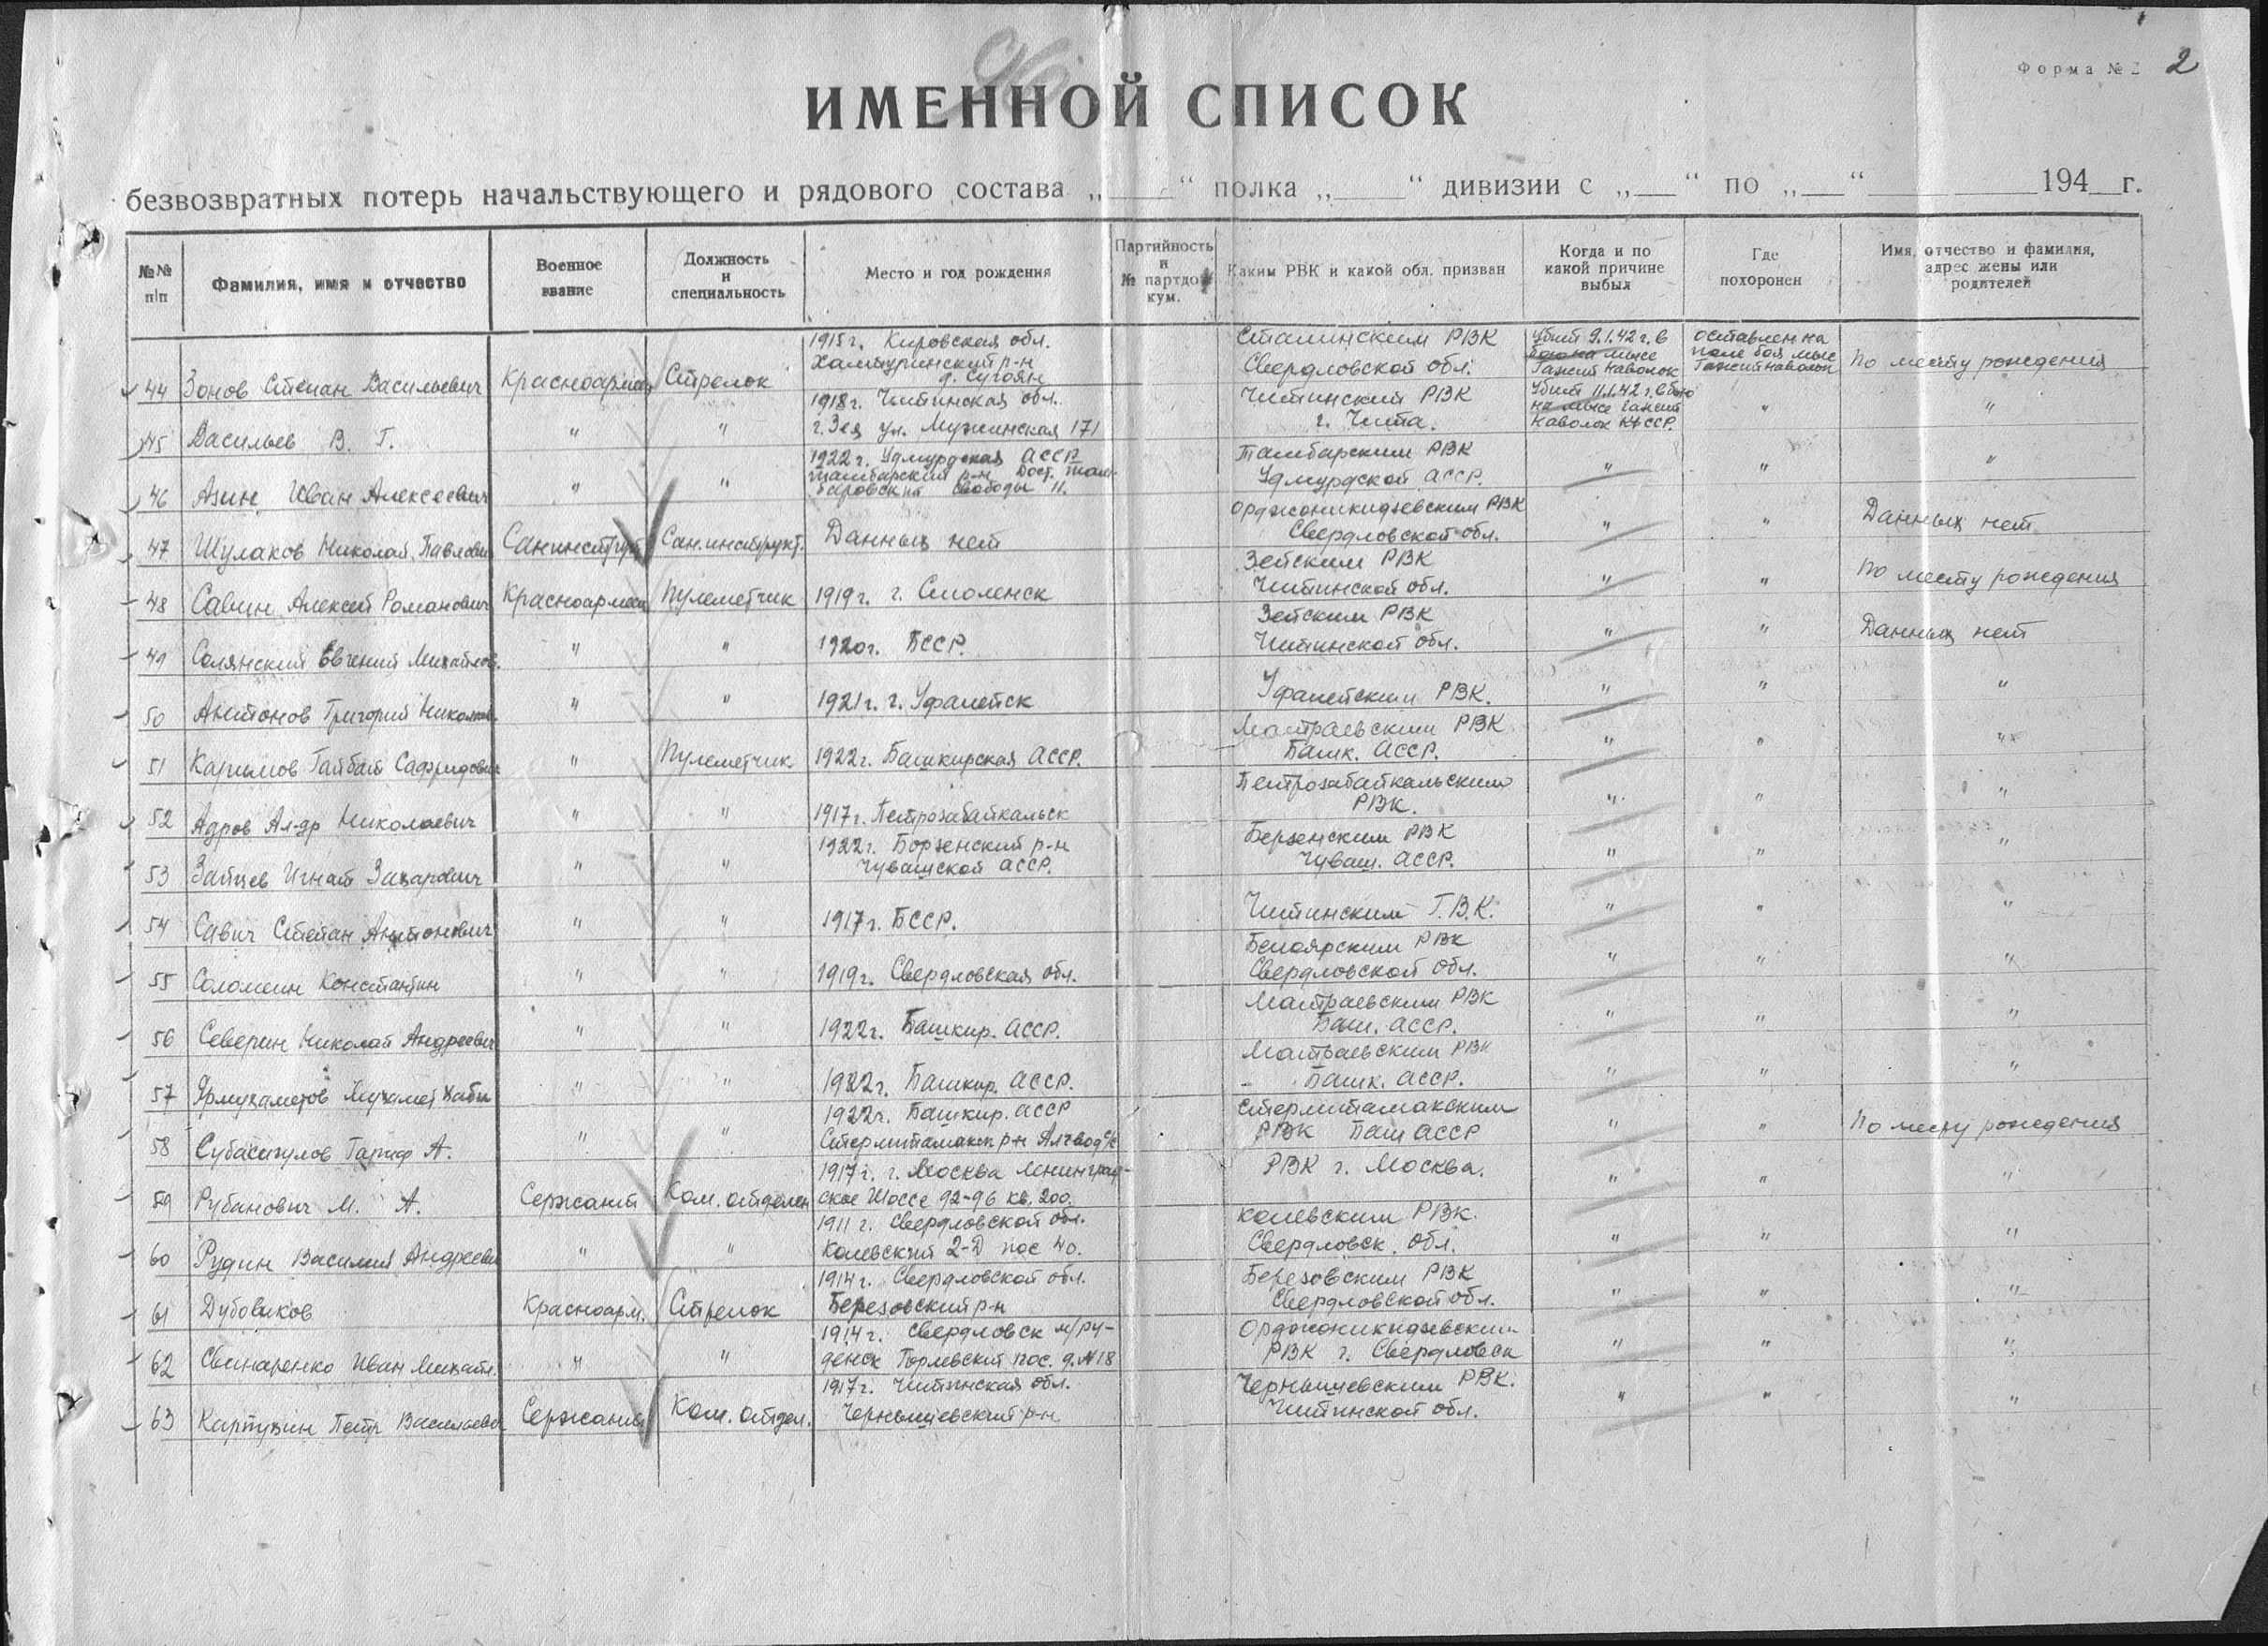 Форма № 2
2
ИМЕННОЙ СПИСОК
безвозвратных потерь начальствующего и рядового состава „___“ полка „___“ дивизии с „__“ по „__“ ______ 194__г.
№№ п/п | Фамилия, имя и отчество | Военное звание | Должность и специальность | Место и год рождения | Партийность и № партдокум. | Каким РВК и какой обл. призван | Когда и по какой причине выбыл | Где похоронен | Имя, отчество и фамилия, адрес жены или родителей
44 Зонов Степан Васильевич Красноармеец Стрелок 1915г. Кировская обл. р-н д. Сталинским РВК Свердловской обл. Убит 9.1.42г. в бою на мысе Гажий Наволок оставлен на поле боя мыс Гажий Наволок По месту рождения
45 Васильев В. Г. " " 1918г. Читинская обл. г. Зея ул. Мухинская 171 Читинский РВК г. Чита. Убит 11.1.42г. в бою на мысе Наволок КФССР. " "
46 Азин Иван Алексеевич " " 1922г. Удмурдская АССР р-н Свободы 11. Тамбарским РВК Удмурдской АССР. " " "
47 Шулаков Николай Павлович Санинструк Сан.инструкт. Данных нет Орджоникидзевским РВК Свердловской обл. " " Данных нет
48 Савин Алексей Романович Красноармеец Пулеметчик 1919г. г. Смоленск Зейским РВК Читинской обл. " " По месту рождения
49 Солянский Евгений Михайлов. " " 1920г. БССР. Зейским РВК Читинской обл. " " Данных нет
50 Антонов Григорий Николаев. " " 1921г. г. Уфалейск Уфалейским РВК. " " "
51 Каримов Гайбай " Пулеметчик 1922г. Башкирская АССР. Матраевским РВК Башк. АССР. " " "
52 Адров Ал-др Николаевич " " 1917г. Петрозабайкальск Петрозабайкальским РВК. " " "
53 Зайцев Игнат Захарович " " 1922г. Борзенский р-н Чувашской АССР. Берзенским РВК Чуваш. АССР. " " "
54 Савич Степан Антонович " " 1917г. БССР. Читинским Г.В.К. " " "
55 Соломеин Константин " " 1919г. Свердловская обл. Белоярским РВК Свердловской обл. " " "
56 Северин Николай Андреевич " " 1922г. Башкир. АССР. Матраевским РВК Баш. АССР. " " "
57 Ярмухаметов Мухамет Хаби " " 1922г. Башкир. АССР. Матраевским РВК Башк. АССР. " " "
58 Субасигулов Гариф А. " " 1922г. Башкир. АССР р-н с/с Стерлитамакским РВК Баш АССР " " По месту рождения
59 Рубанович М. А. Сержант Ком. отделен 1917г. г. Москва Ленинградское Шоссе 92-96 кв. 200. РВК г. Москва. " " "
60 Рудин Василий Андрееви " " 1911 г. Свердловской обл. 2-Д пос 40. РВК. Свердловск. обл. " " "
61 Дубовиков Красноарм. Стрелок 1914г. Свердловской обл. Березовский р-н Березовским РВК Свердловской обл. " " "
62 Свинаренко Иван Михайл. " " 1914г. Свердловск пос. д. №18 Орджоникидзевским РВК г. Свердловска " " "
63 Карпухин Петр Васильеви Сержант Ком. отдел. 1917г. Читинская обл. Чернышевский р-н Чернышевским РВК. Читинской обл. " " "